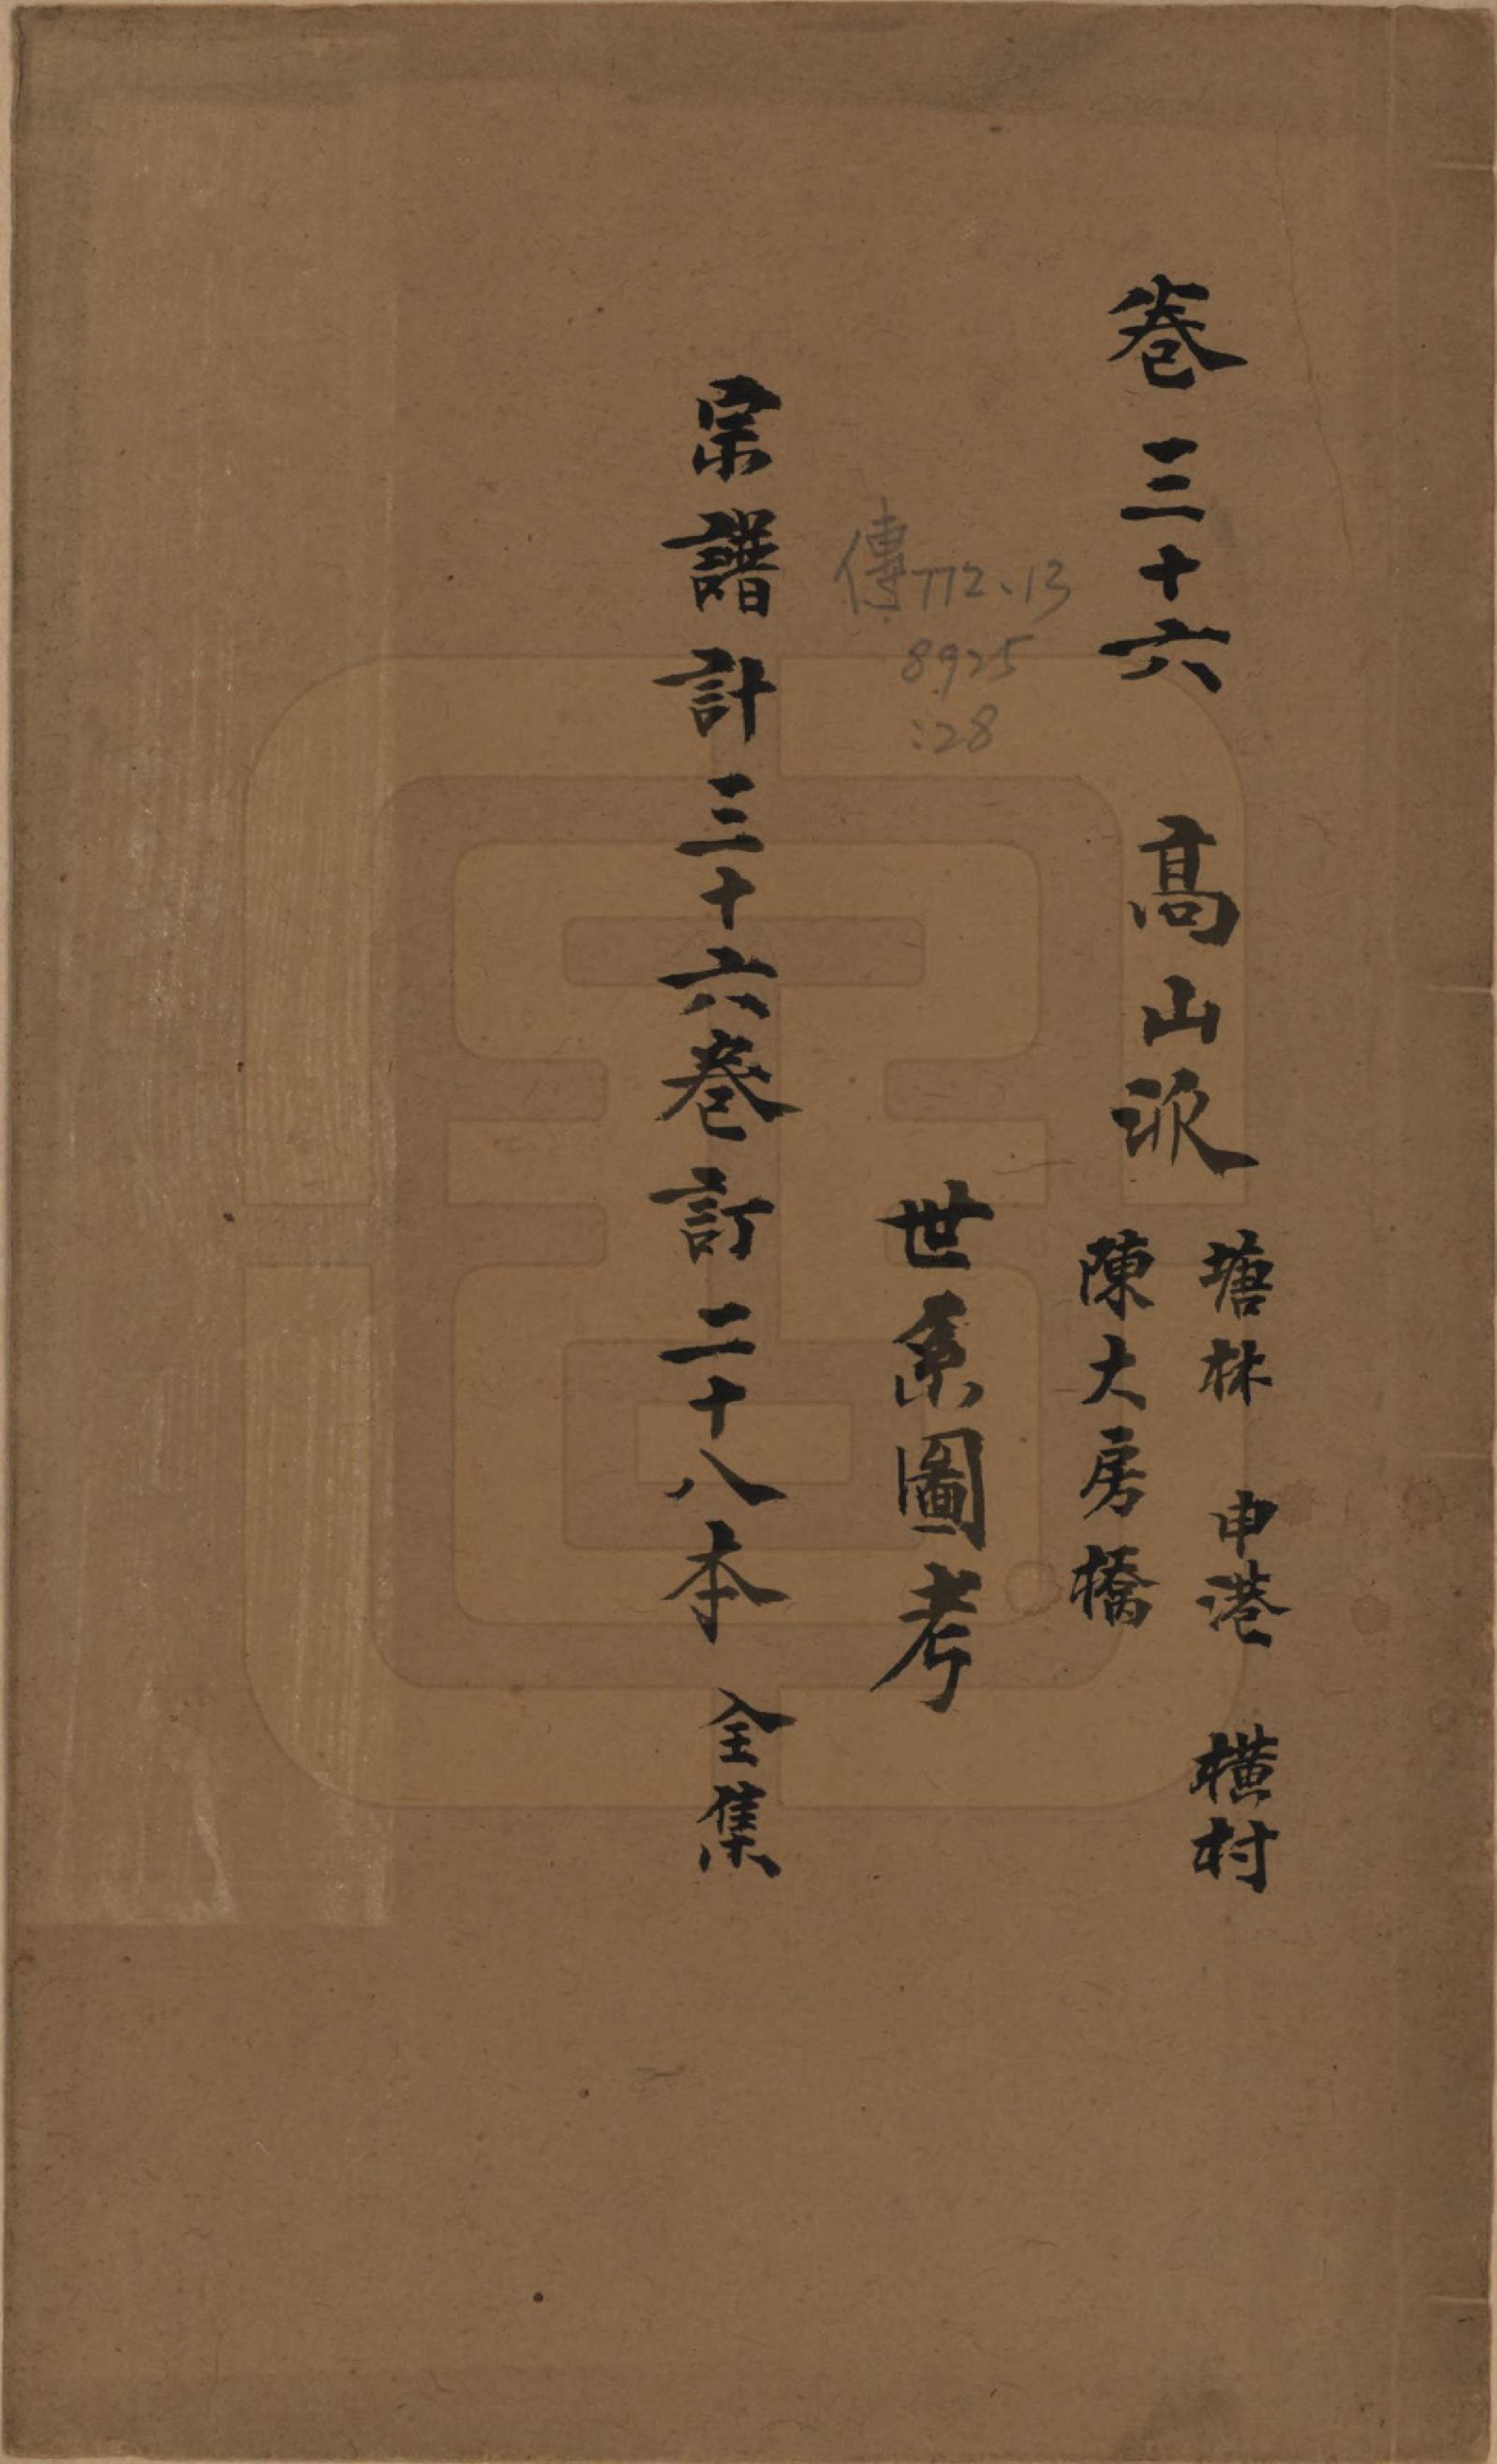 卷三十六 高山派
塘林 申港 橫村
陳大房橋
世系圖考
傳772.13
8925
:28
宗譜計三十六卷訂二十八本 全集